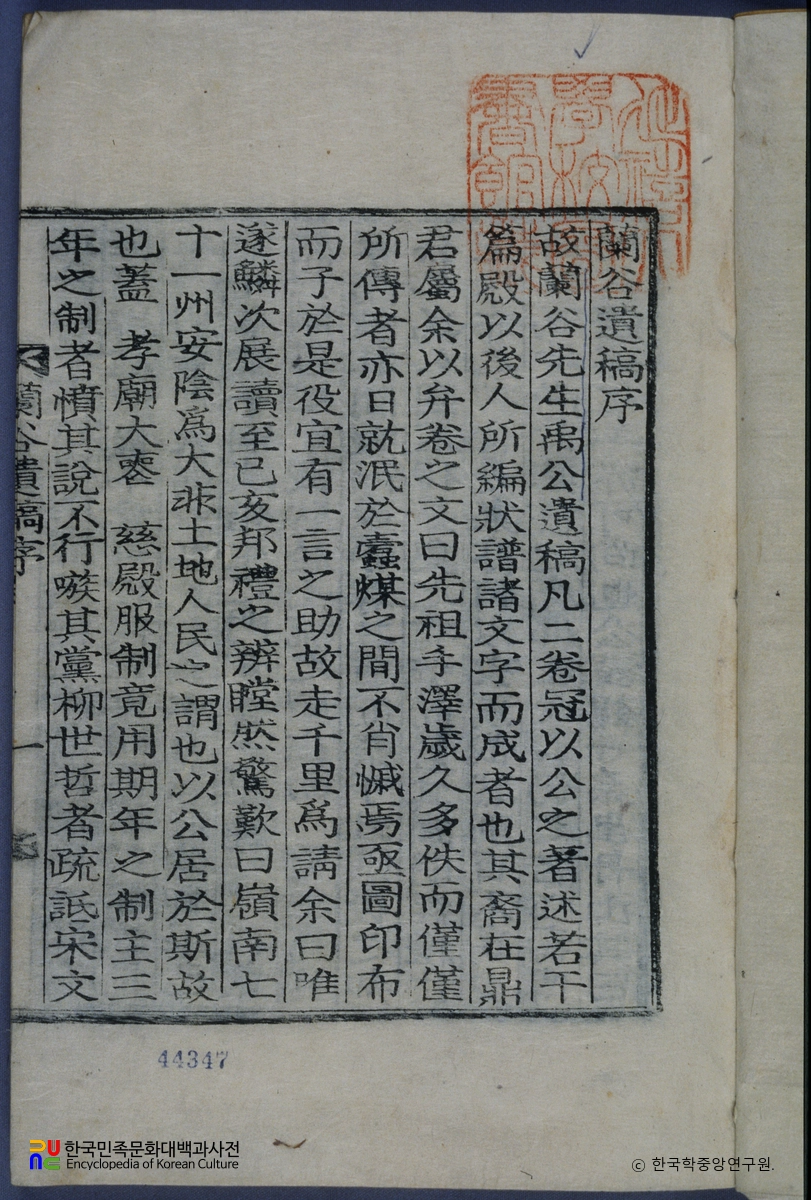 蘭谷遺稿序
故蘭谷先生禹公遺稿凡二卷冠以公之著述若干
篇殿以後人所編狀譜諸文字而成者也其裔在鼎
君屬余以弁卷之文曰先祖手澤歲久多佚而僅僅
所傳者亦日就泯於蠹煤之間不肖慽焉亟圖印布
而子於是役宜有一言之助故走千里爲請余曰唯
遂鱗次展讀至已亥邦禮之辨瞠然驚歎曰嶺南七
十一州安陰爲大非土地人民之謂也以公居於斯故
也蓋 孝廟大喪 慈殿服制竟用期年之制主三
年之制者憤其說不行嗾其黨柳世哲者疏詆宋文
蘭谷遺稿序
一
44347
한국민족문화대백과사전
Encyclopedia of Korean Culture
ⓒ 한국학중앙연구원.